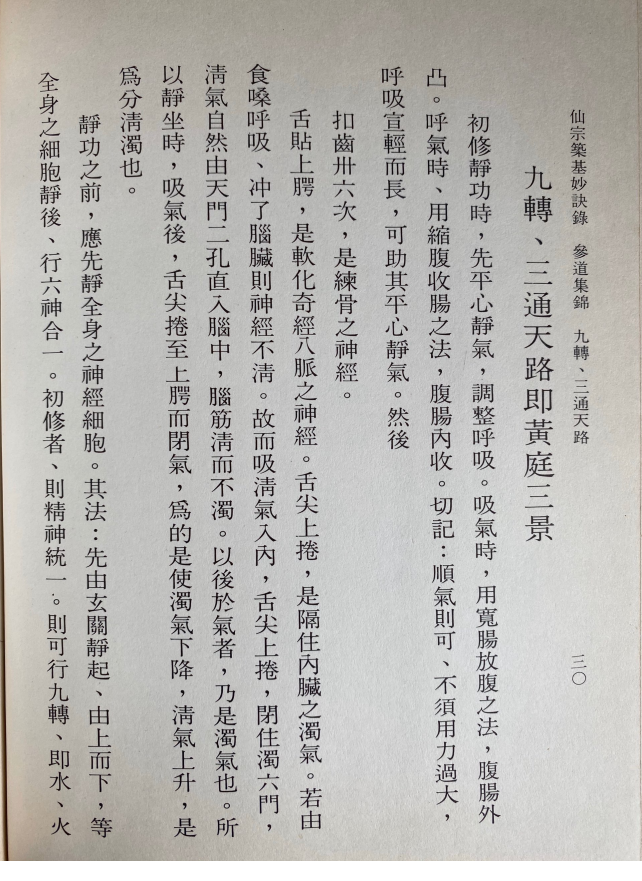 仙宗築基妙訣錄　參道集錦　九轉、三通天路
三〇
九轉、三通天路即黃庭三景
初修靜功時，先平心靜氣，調整呼吸。吸氣時，用寬腸放腹之法，腹腸外
凸。呼氣時、用縮腹收腸之法，腹腸內收。切記：順氣則可、不須用力過大，
呼吸宣輕而長，可助其平心靜氣。然後
扣齒卅六次，是練骨之神經。
舌貼上腭，是軟化奇經八脈之神經。舌尖上捲，是隔住內臟之濁氣。若由
食嗓呼吸、冲了腦臟則神經不淸。故而吸淸氣入內，舌尖上捲，閉住濁六門，
淸氣自然由天門二孔直入腦中，腦筋淸而不濁。以後於氣者，乃是濁氣也。所
以靜坐時，吸氣後，舌尖捲至上腭而閉氣，爲的是使濁氣下降，淸氣上升，是
爲分淸濁也。
靜功之前，應先靜全身之神經細胞。其法：先由玄關靜起、由上而下，等
全身之細胞靜後、行六神合一。初修者、則精神統一。則可行九轉、即水、火